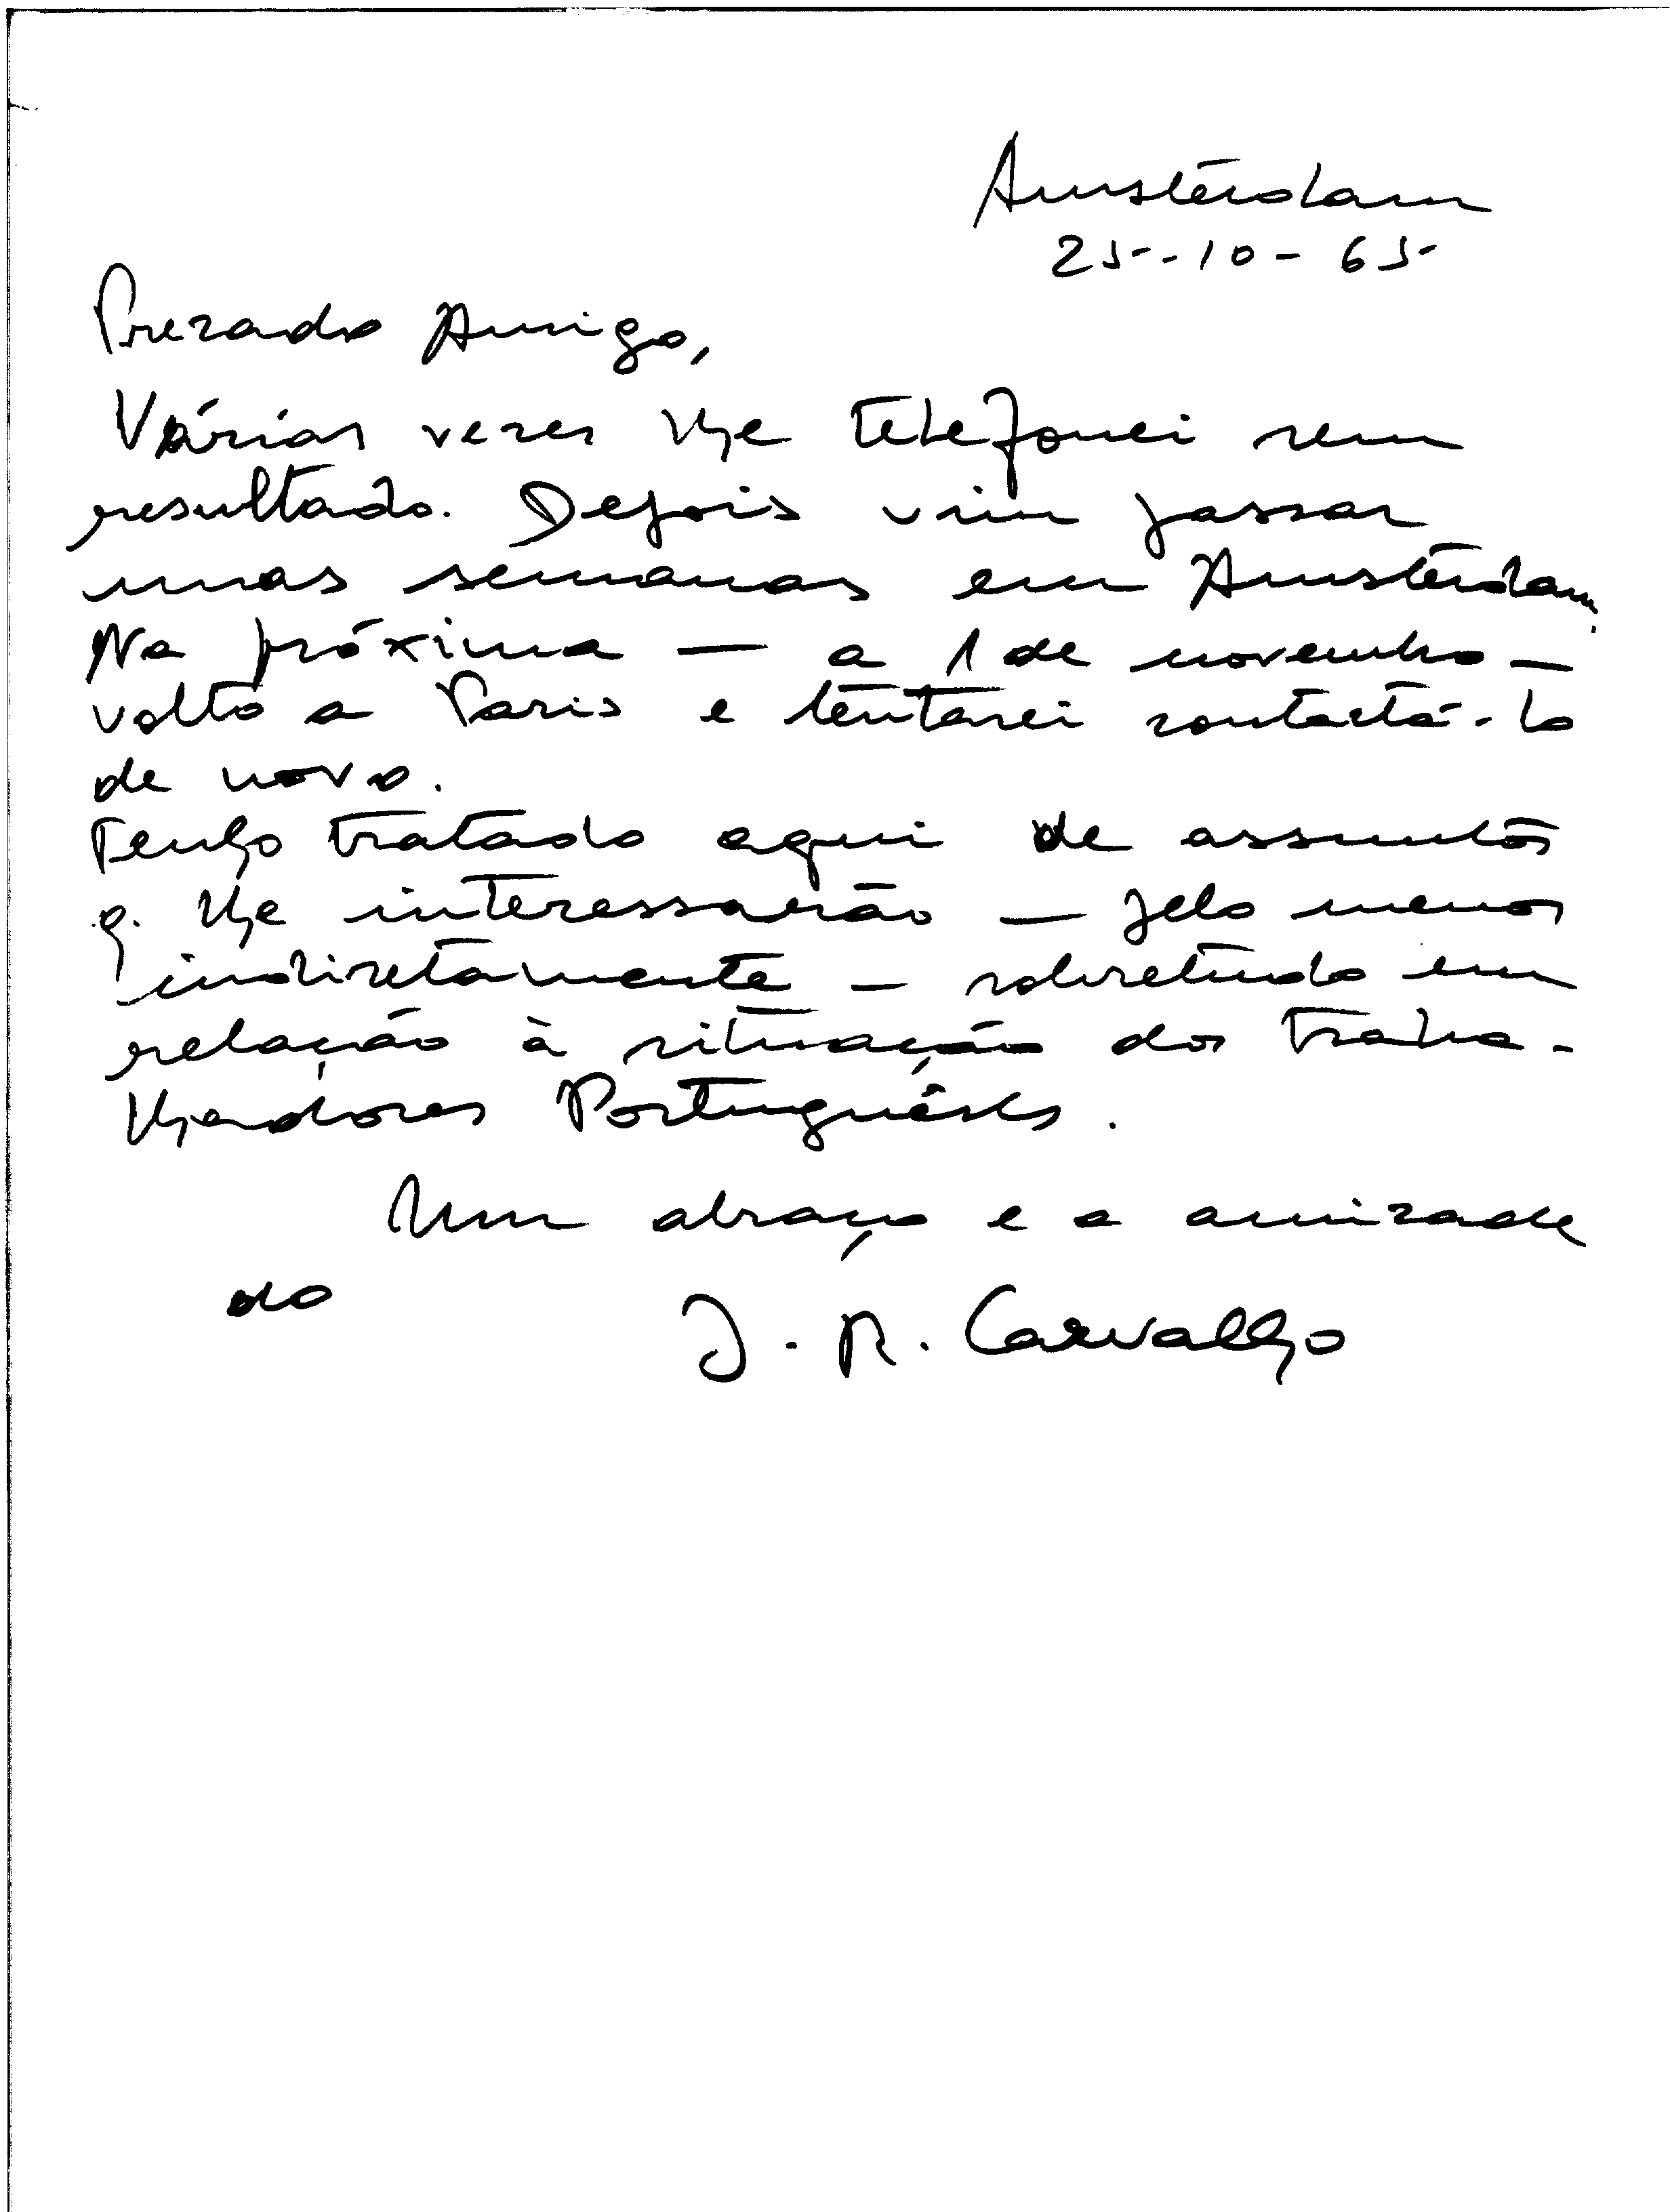 Amsterdam
25-10-65
Prezado Amigo,
Várias vezes lhe telefonei sem
resultado. Depois vim passar
umas semanas em Amsterdam.
Na próxima — a 1 de novembro —
volto a Paris e tentarei contactá-lo
de novo.
Tenho tratado aqui de assuntos
q. lhe interessarão — pelo menos
indiretamente — sobretudo em
relação à situação dos traba-
lhadores Portuguêses.
Um abraço e a amizade
do
J. R. Carvalho